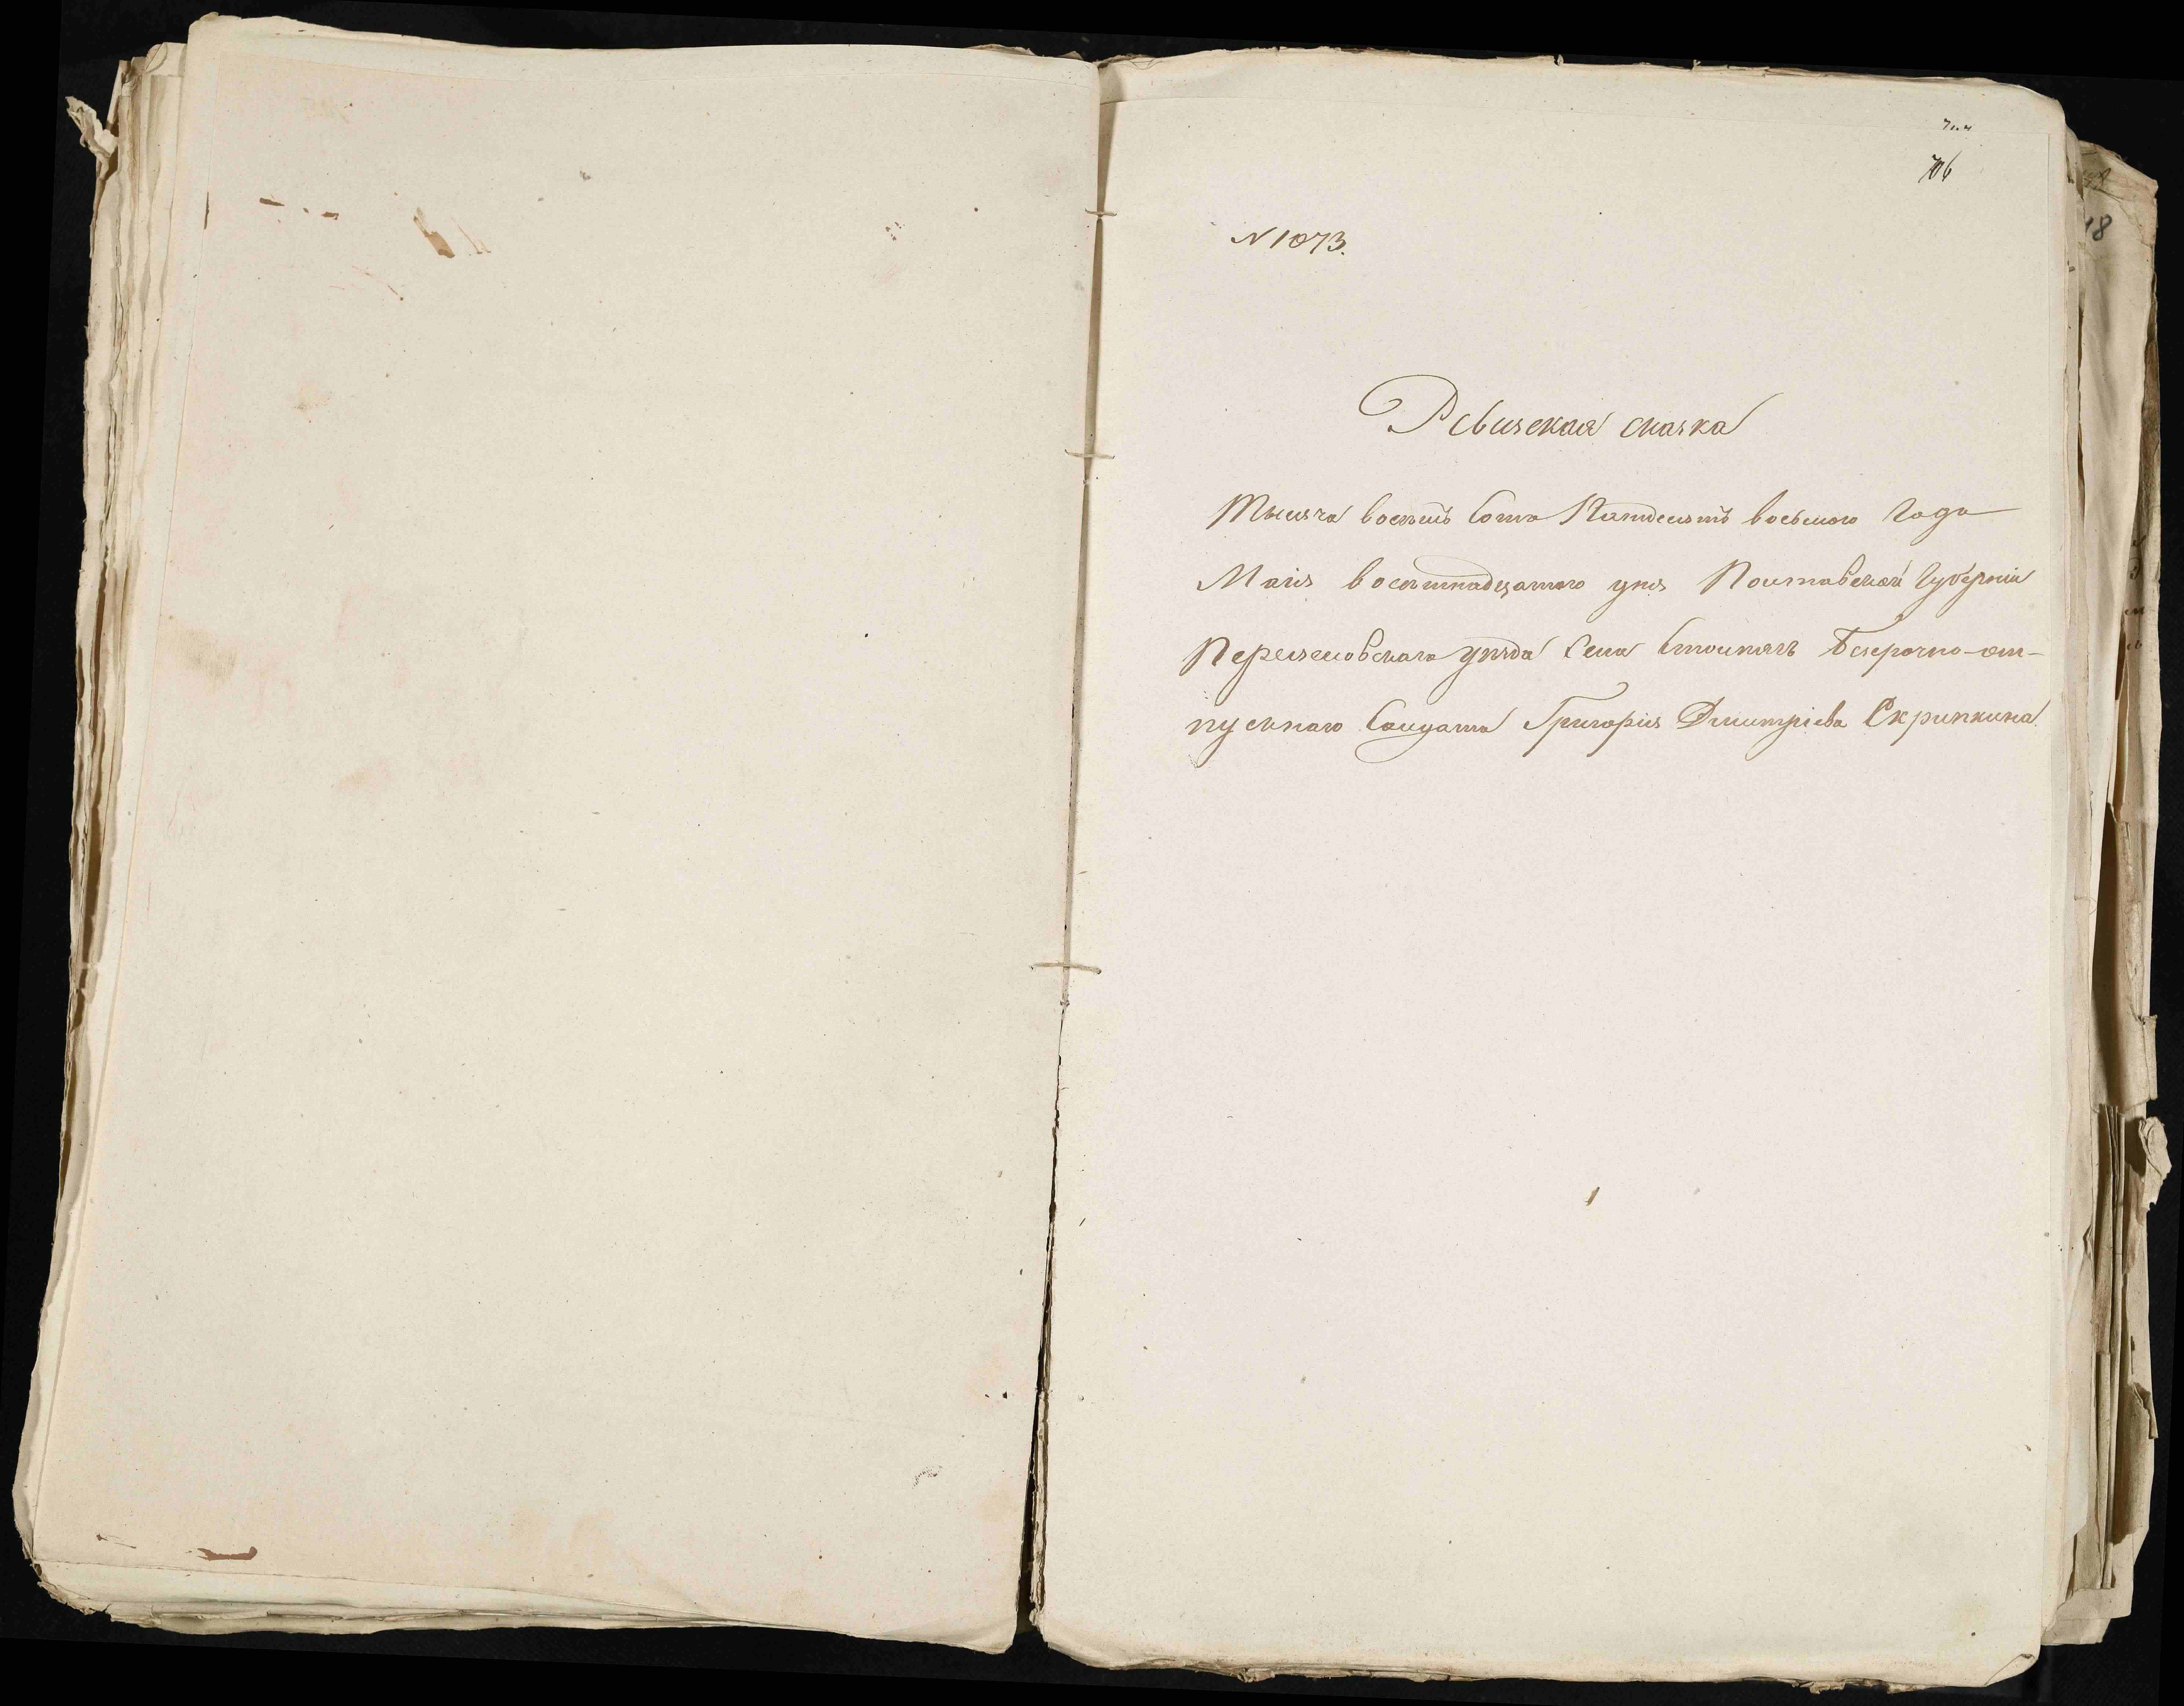 706
N 1073.
Ревизская сказка
Тысяча восемь сотъ Пятдесятъ восьмого Года
Маія восемнадцатого дня Полтавской Губерніи
Переяславского уѣзда Села Стовпягъ Безсрочно-от-
пускного Солдата Григорія Дмитріева Скрипкина
18